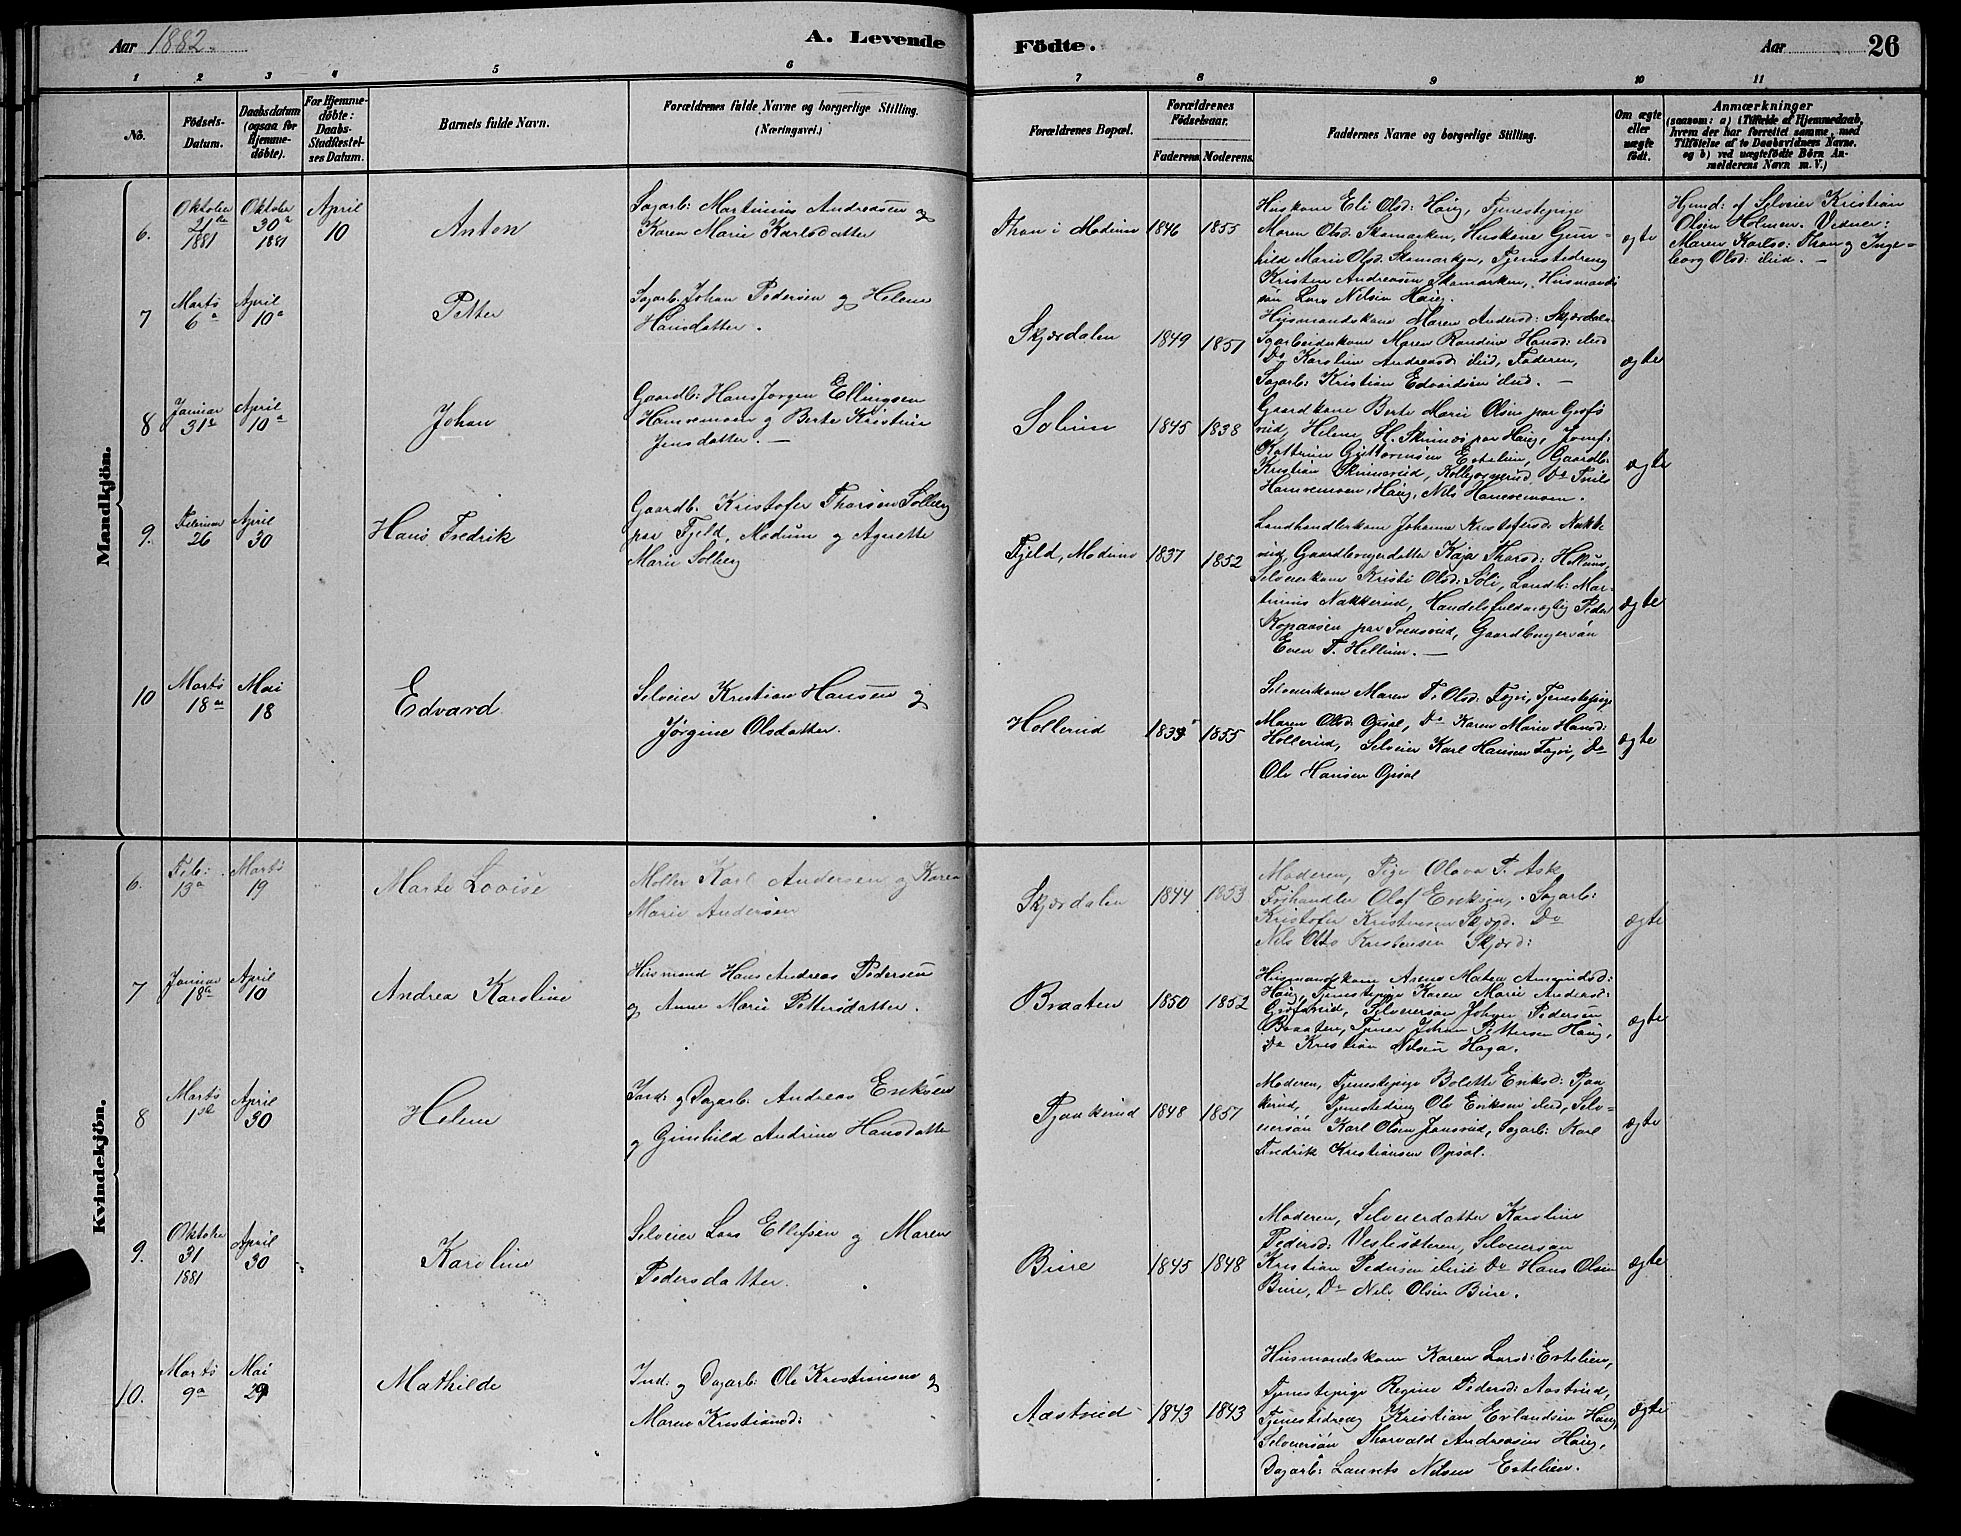 Aar 1882.
A. Levende
Födte.
Aar
26
1 2 3 4 5 6 7 8 9 10 11
No.
Födsels-
Datum.
Daabsdatum
(ogsaa for
Hjemme-
döbte).
For Hjemme-
döbte:
Daabs-
Stadfæstel-
ses Datum.
Barnets fulde Navn.
Forældrenes fulde Navne og borgerlige Stilling.
(Næringsvei.)
Forældrenes Bopæl.
Forældrenes
Födselsaar.
Faderens. Moderens.
Faddernes Navne og borgerlige Stilling.
Om ægte
eller
uægte
födt.
Anmærkninger
(saasom: a) i Tilfælde af Hjemmedaab,
hvem der har forrettet samme, med
Tilföielse af to Daabsvidners Navne.
og b) ved uægtefödte Börn An-
melderens Navn m. V.)
Mandkjön.
6.
Oktober
21de
1881
Oktober
30a
1881
April
10
Anton
Sagarb: Martinius Andreasen og
Karen Marie Karlsdatter
Thon i Modum
1846
1855
Huskone Eli Olsd: Haug, Tjenestepige
Maren Olsd: Skamarken, Huskone Gun-
hild Marie Olsd: Skamarken, Tjenestedreng
Kristen Andreasen Skamarken, Husmands
søn Lars Nilsen Haug.
ægte
Hjmd: af Selveier Kristian
Olsen Holmen. Vidner:
Maren Karlsd: Thon og Inge-
borg Olsd: ibid. —
7
Marts
6a
April
10a
Petter
Sagarb. Johan Pedersen og Helene
Hansdatter.
Skjærdalen
1849
1851
Husmandskone Maren Andersd: Skjærdalen
Sagarbeiderkone Maren Randine Hansd: ibid
Do Karoline Andreasd ibid, Faderen,
Sagarb: Kristian Edvardsen ibid. —
ægte
8
Januar
31te
April
10a
Johan
Gaardb: Hans Jørgen Ellingsen
Hanvemoen og Berte Kristine
Jensdatter. —
Solum
1845
1838
Gaardkone Berte Marie Olsen paa Grøfs
rud, Helene H. Skinnes paa Haug, Jomf:
Kathrine Guttormsen Estelien, Gaardb:
Kristian Skinnerud,
Hanvemoen, Haug, Nils Hanevemoen.
ægte
9.
Februar
26
April
30
Hans Fredrik
Gaardb. Kristofer Thorsen Solberg
paa Fjeld, Modum og Agnette
Marie Solberg
Fjeld, Modum
1837
1852
Landhandlerkone Johanne Kristofersd: Nakke
rud, Gaardbrugerdatter Kaja Thorsd: Hellum,
Selveierkone Kristi Olsd: Soli, Landh: Mar-
tinius Nakkerud, Handelsfuldmægtig Peder
Kopaasen paa Svensrud, Gaardbrugersøn
Even T. Hellum. —
ægte
10
Marts
18de
Mai
18
Edvard
Selveier Kristian Hansen og
Jørgine Olsdatter.
Hollerud
1855
Selveierkone Maren T. Olsd: Fagri, Tjenestepige
Maren Olsd: Opsal, Do Karen Marie Hansd:
Hollerud, Selveier Karl Hansen Fagri, Do
Ole Hansen Opsal
ægte
Kvindekjön.
6.
Feb:
13a
Marts
19
Marte Lovise
Møller Karl Andersen og Karen
Marie Andersen
Skjærdalen
1844
1853
Moderen, Pige Olava P. Ask
Fehandler Olaf Eriksen, Sagarb:
Kristofer Kristensen Skjærd. Do
Nils Otto Kristensen Skjærd:
ægte
7
Januar
18a
April
10
Andrea Karoline
Husmand Hans Andreas Pedersen
og Anne Marie Pettersdatter.
Braaten
1850
1852
Husmandskone Anne Matea Amundsd:
Haug, Tjenestepige Karen Marie Andersd:
Grøfsrud, Selveiersøn Johan Pedersen
Braaten, Tjener Johan Pettersen Haug,
Do Kristian Nilsen Haga.
ægte
8
Marts
1ste
April
30
Helene
Ind: og Dagarb: Andreas Eriksen
og Gunhild Andrine Hansdatter
Tjonkerud
1848
1851
Moderen, Tjenestepige Bolette Eriksd: Tjon
kerud, Tjenestedreng Ole Eriksen ibid, Selv-
eiersøn Karl Olsen Jonsrud, Sagarb: Karl
Fredrik Kristiansen Opsal.
ægte
9.
Oktober
31
1881
April
30
Karoline
Selveier Lars Ellefsen og Maren
Pedersdatter.
Bure
1845
1848
Moderen, Selveierdatter Karoline
Pedersd: Vesleseteren, Selveiersøn
Kristian Pedersen ibid Do Hans Olsen
Bure, Do Nils Olsen Bure.
ægte
10.
Marts
9a
Mai
29
Mathilde
Ind: og Dagarb: Ole Kristiansen og
Maren Kristiansd:
Aastrud
1843
1843
Husmandskone Karen Larsd: Estelien,
Tjenestepige Regine Pedersd: Aastrud,
Tjenestedreng Kristian Erlandsen Haug,
Selveiersøn Thorvald Andreasen Haug,
Dagarb: Laurits Nilsen Estelien.
ægte